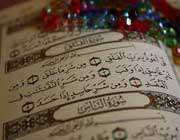 سُورَةُ الْفَلَقِ
أَعُوذُ بِرَبِّ الْفَلَقِ مِن شَرِّ مَا خَلَقَ
إِذَا وَقَبَ وَمِن شَرِّ
وَمِن شَرِّ حَاسِدٍ إِذَا حَسَدَ
سُورَةُ النَّاسِ